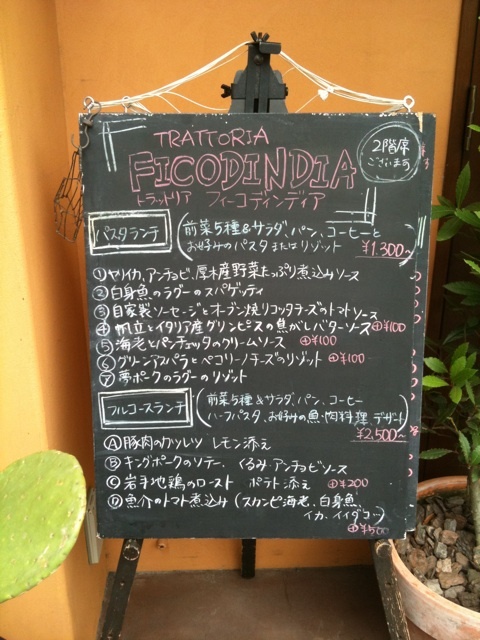 TRATTORIA
FICODINDIA
トラットリア フィーコディンディア
2階席
ございます
パスタランチ
(前菜5種&サラダ、パン、コーヒーと
お好みのパスタまたはリゾット
¥1,300〜
①ヤリイカ、アンチョビ、厚木産野菜たっぷり煮込みソース
②白身魚のラグーのスパゲッティ
③自家製ソーセージとオーブン焼リコッタチーズのトマトソース
④帆立とイタリア産グリンピースの焦がしバターソース⊕¥100
⑤海老とパンチェッタのクリームソース ⊕¥100
⑥グリーンアスパラとペコリーノチーズのリゾット ⊕¥100
⑦夢ポークのラグーのリゾット
フルコースランチ
(前菜5種&サラダ、パン、コーヒー
ハーフパスタ、お好みの魚・肉料理、デザート)
¥2,500〜
Ⓐ豚肉のカツレツ レモン添え
Ⓑキングポークのソテー、くるみ・アンチョビソース
Ⓒ岩手地鶏のロースト ポテト添え ⊕¥200
Ⓓ魚介のトマト煮込み (スカンピ海老、白身魚、
イカ、イイダコ…)
⊕¥500